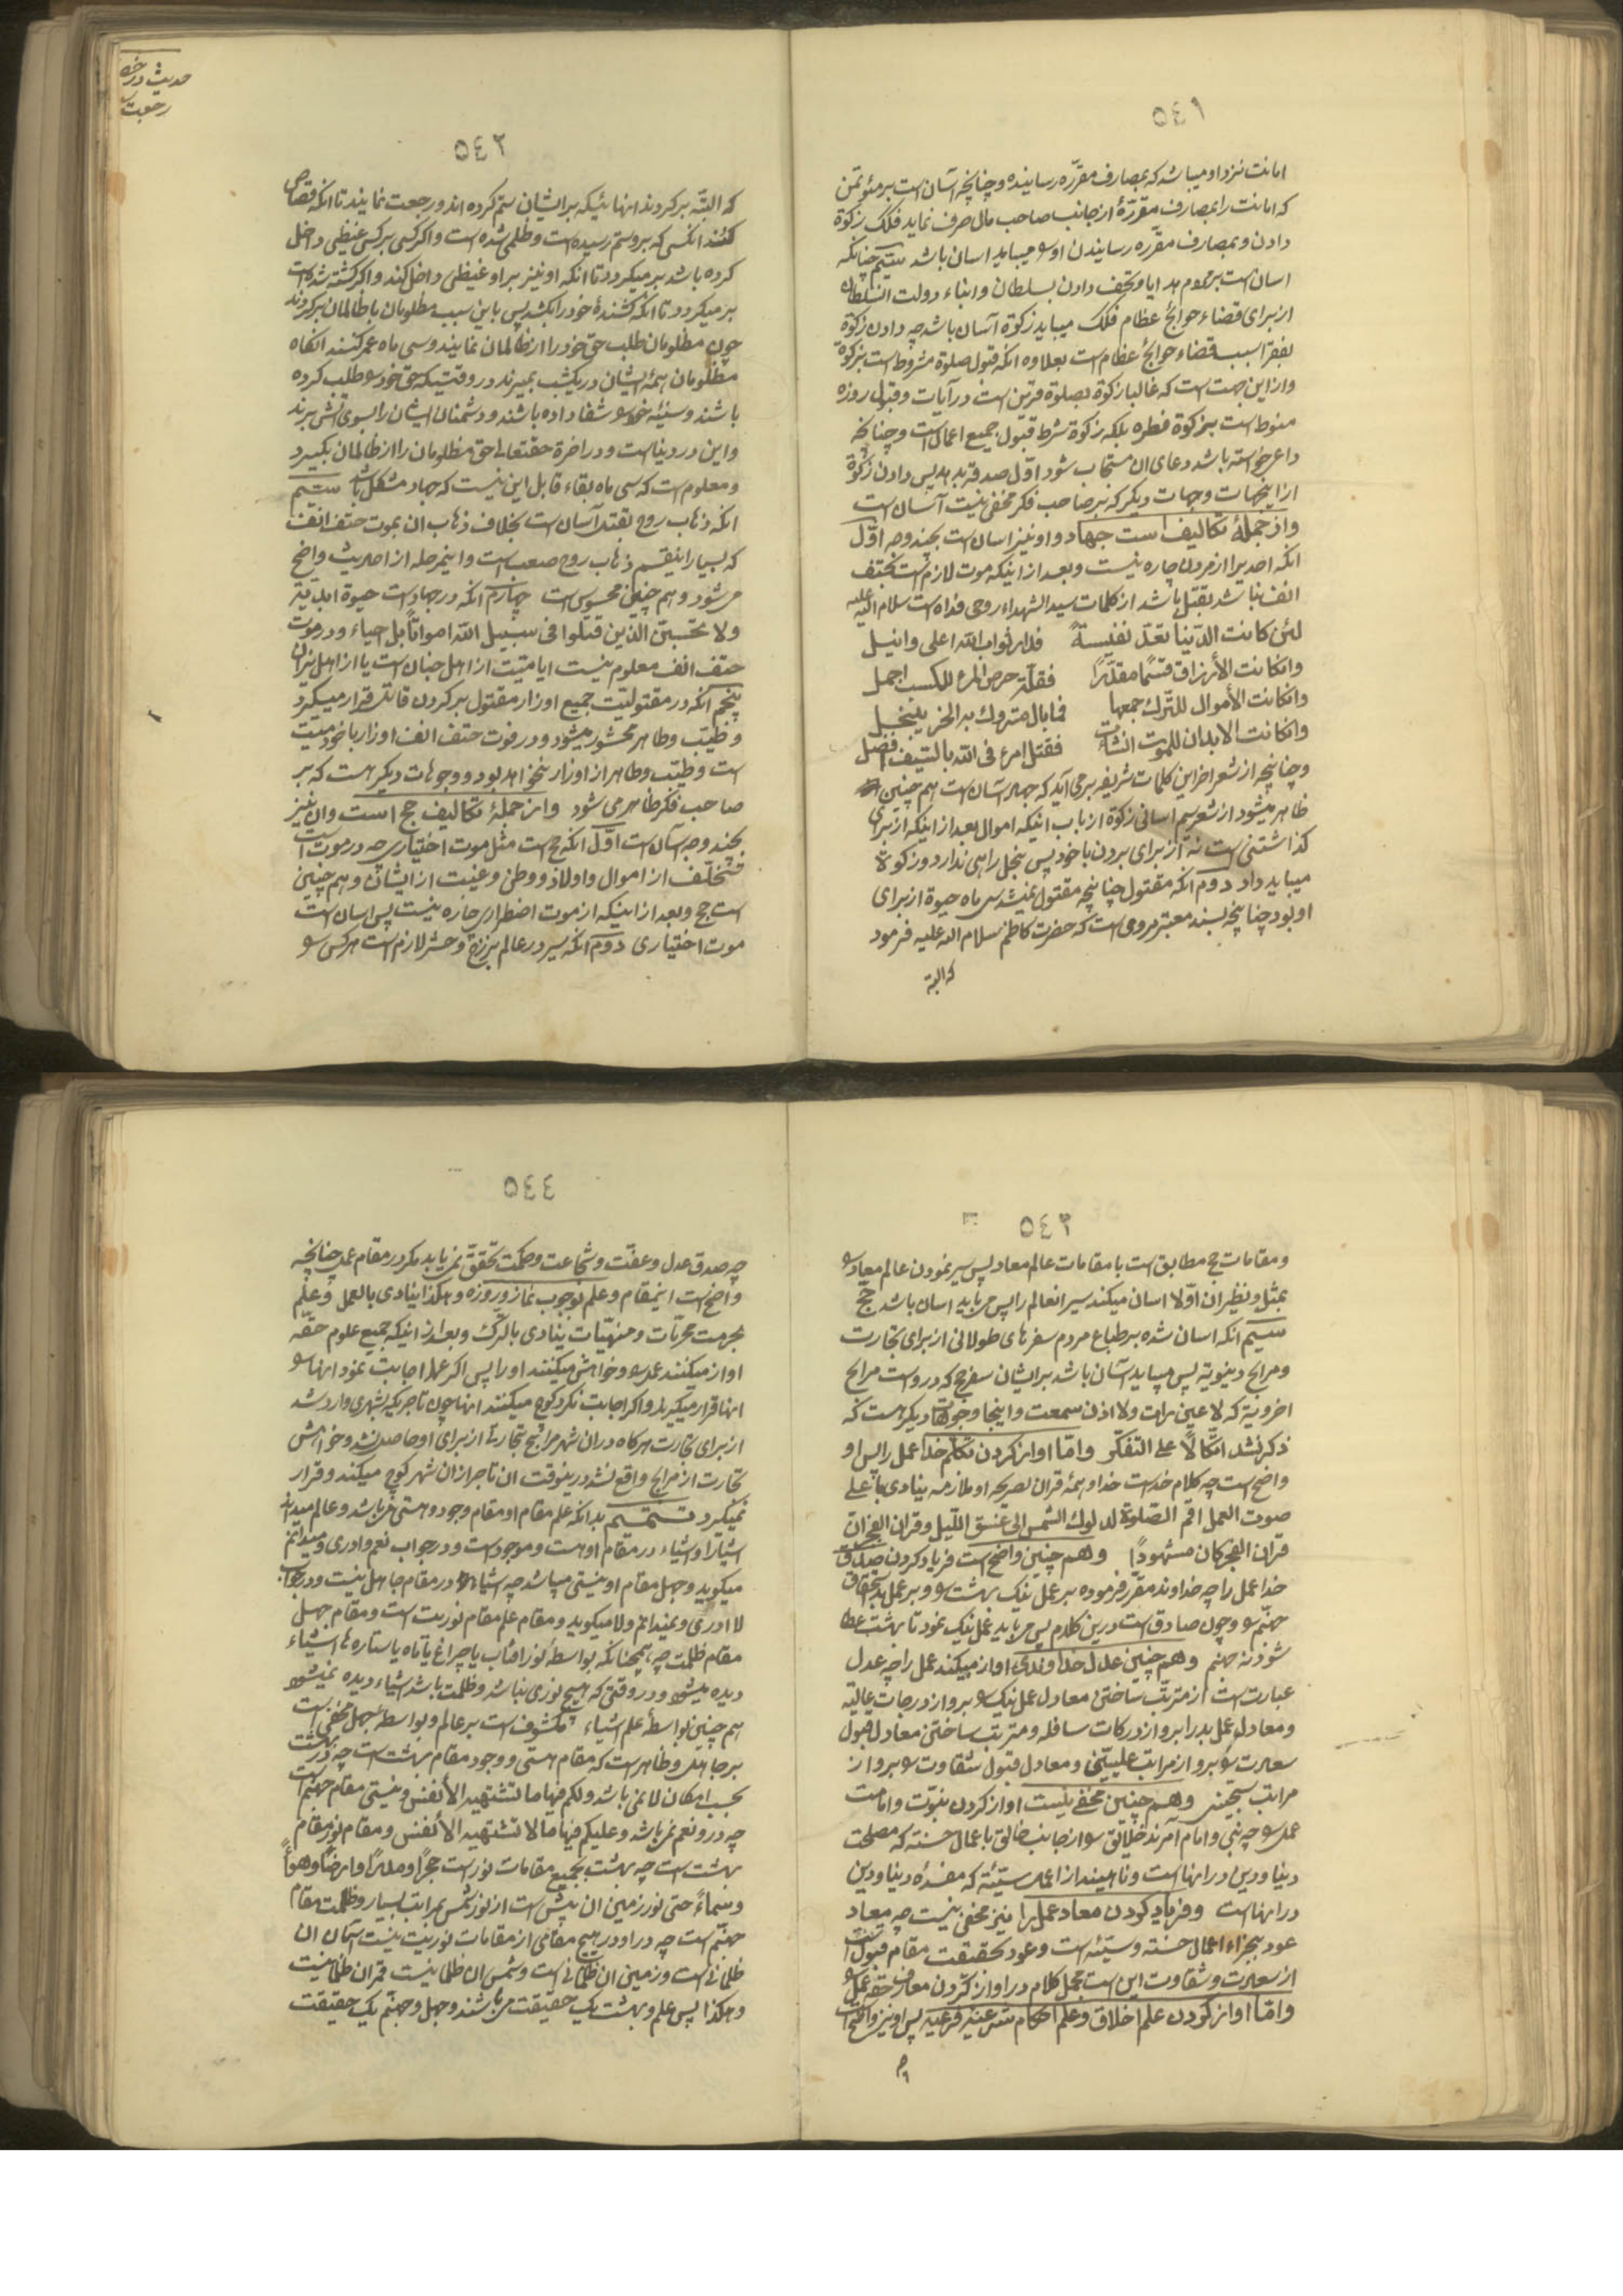 ٥٤١
امانت نزد او میباشد که بمصارف مقرّره رسانیده و چنانچه آسان است بر مؤتمن
که امانت را بمصارف مقرّرهٔ از جانب صاحب مال صرف نماید فلک زکوة
دادن و بمصارف مقرّره رسانیدن او میباید اسان باشد سیّم چنانکه
اسان است بر مردم هدایا و تحف دادن بسلطان و ابناء دولت السّلطان
از برای قضاء حوائج عظام فلک میباید زکوة آسان باشد چه دادن زکوة
بفقرا سبب قضاء حوائج عظام است بعلاوه انکه قبول صلوة مشروط است بزکوة
و از این جهت است که غالبا زکوة بصلوة قرین است در آیات و قبول روزه
منوط است بزکوة فطره بلکه زکوة شرط قبول جمیع اعمال است و چنانچه
داعی خواسته باشد دعای ان مستجاب شود اوّل صدقه بدهد پس دادن زکوة
از اینجهات و جهات دیگر که بر صاحب فکر مخفی نیست آسان است
و از جملهٔ تکالیف است جهاد و او نیز اسان است بچند وجه اوّل
انکه احدیرا از مردن چاره نیست و بعد از اینکه موت لازم است بحتف
انف نباشد بقتل باشد از کلمات سید الشهداء روحی فداه است سلام الله علیه
لئن کانت الدّنیا تعدّ نفیسةً فدار ثواب الله اعلی و انبل
وانکانت الأرزاق قسمًا مقدّرًا فقلّة حرص المرء للکسب اجمل
وانکانت الأموال للتّرک جمعها فما بال متروک به الحرّ یبخل
وانکانت الابدان للموت انشأت فقتل امرء فی الله بالسّیف افضل
و چنانچه از شعر اخر این کلمات شریفه بر می آید که جهاد آسان است هم چنین
ظاهر میشود از شعر سیم اسانی زکوة از باب اینکه اموال بعد از اینکه از برای
گذاشتنی است نه از برای بردن با خود پس بخل راهی ندارد و زکوة
میباید داد دوم انکه مقتول چنانچه مقتول نمیشد سی ماه حیوة از برای
او بود چنانچه بسند معتبر مروی است که حضرت کاظم سلام الله علیه فرمود
که البته
حدیث در خصوص
رجعت
٥٤٢
که البتّه برگردند انهائیکه بر ایشان ستم کرده اند و رجعت نمایند تا انکه قصاص
کنند انکسی که بر و ستم رسیده است و ظلمی شده است و اگر کسی بر کسی غیظی داخل
کرده باشد بر میگردد تا انکه او نیز بر او غیظی داخل کند و اگر کشته شده است
بر میگردد تا انکه کشندهٔ خود را بکشد پس باین سبب مظلومان با ظالمان برگردند
چون مظلومان طلب حق خود را از ظالمان نمایند و سی ماه عمر کنند انگاه
مظلومان همهٔ ایشان در یکشب بمیرند در وقتیکه حق خود را طلب کرده
باشند و سینهٔ خود را شفا داده باشند و دشمنان ایشان را بسوی اتش برند
و این در دنیا است و در اخرة حقتعالی حق مظلومان را از ظالمان بگیرد
و معلوم است که سی ماه بقاء قابل این نیست که جهاد مشکل باشد سیّم
انکه ذهاب روح بقتل آسان است بخلاف ذهاب ان بموت حتف انف
که بسیار اینقسم ذهاب روح صعب است و اینمرحله از احادیث واضح
میشود و هم چنین محسوس است چهارم انکه در جهاد است حیوة ابدیّه
ولا تحسبنّ الّذین قتلوا فی سبیل الله امواتًا بل احیاء و در موت
حتف انف معلوم نیست ایا میّت از اهل جنان است یا از اهل نیران
پنجم انکه در مقتولیّت جمیع اوزار مقتول بر گردن قاتل قرار میگیرد
و طیّب و طاهر محشور میشود و در فوت حتف انف اوزار با خود میّت
است و طیّب و طاهر از اوزار نخواهد بود و وجوهات دیگر هست که بر
صاحب فکر ظاهر می شود و از جملهٔ تکالیف حج است و ان نیز
بچند وجه آسان است اوّل انکه حج است مثل موت اختیاری چه در موت است
تخلّف از اموال و اولاد و وطن و غیبت از ایشان و هم چنین
است حج و بعد از اینکه از موت اضطراری چاره نیست پس اسان است
موت اختیاری دوم انکه سیر در عالم برزخ و حشر لازم است هر کس را
٥٤٣
و مقامات حج مطابق است با مقامات عالم معاد پس سیر نمودن عالم معاد را
بمثل و نظیر ان اوّلا اسان میکند سیر انعالم را پس میباید اسان باشد حجّ
سیّم انکه اسان شده بر طباع مردم سفرهای طولانی از برای تجارت
و مرابح دینویّه پس میباید آسان باشد بر ایشان سفر حج که در و است مرابح
اخرویّه که لا عین رأت ولا اذن سمعت و اینجا وجوهات دیگر هست که
ذکر نشد اتّکالًا علی التفکّر و امّا اواز کردن تکلّم خدا عمل را پس او
واضح است چه کلام خداست خدا و همهٔ قران بصریحه او ملازمه ینادی باعلی
صوت العمل اقم الصّلوة لدلوک الشمس الی غسق اللّیل و قران الفجر ان
قران الفجر کان مشهودًا و هم چنین واضح است فریاد کردن صدق
خدا عمل را چه خداوند مقرّر فرموده بر عمل نیک بهشت را و بر عمل بد استحقاق
جهنّم را و چون صادق است درین کلام پس میباید عمل نیک نمود تا بهشت عطا
شود نه جهنم و هم چنین عدل خداوندی اواز میکند عمل را چه عدل
عبارت است از مترتّب ساختن معادل عمل نیک را بر و از درجات عالیّه
و معادل عمل بد را بر و از درکات سافله و مترتب ساختن معادل قبول
سعادت را بر و از مراتب علیّین و معادل قبول شقاوت را بر و از
مراتب سجّین و هم چنین مخفی نیست اواز کردن نبوّت و امامت
عمل را چه نبی و امام آمرند خلایق را از جانب خالق باعمال حسنه که مصلحت
دنیا و دین در انها است و ناهیند از اعمال سیّئه که مفسدهٔ دنیا و دین
در انها است و فریاد کردن معاد عمل را نیز مخفی نیست چه معاد
عود بجزاء اعمال حسنه و سیّئه است و عود بحقیقت مقام قبول است
از سعادت و شقاوت این است مجمل کلام در اواز کردن معارف حقه عمل را
و امّا اواز کردن علم اخلاق و علم احکام شرعیّه فرعیّه پس او نیز واضح است
چه
٥٤٤
چه صدق عدل و عفّت و شجاعت و حکمت تحقّق نمی یابد مگر در مقام عمل چنانچه
واضح است اینمقام و علم بوجوب نماز و روزه و هکذا ینادی بالعمل و علم
بحرمت محرّمات و منهیّات ینادی بالتّرک و بعد از اینکه جمیع علوم حقّه
اواز میکنند عمل را و خواهش میکنند او را پس اگر عمل اجابت نمود انها را
انها قرار میگیرند و اگر اجابت نکرد کوچ میکنند انها چون تاجریکه بشهری وارد شد
از برای تجارت هرگاه در ان شهر مرابح تجارتی از برای او حاصل نشد و خواهش
تجارت از مرابح واقع نشد درینوقت ان تاجر از ان شهر کوچ میکند و قرار
نمیگیرد تتمیم بدانکه علم مقام او مقام وجود و هستی میباشد و عالم میداند
اشیا را و اشیاء در مقام او هست و موجود است و در جواب نعم و ادری و میدانم
میگوید و جهل مقام او نیستی میباشد چه اشیاء در مقام جاهل نیست و در جواب
لا ادری و نمیدانم ولا میگوید و مقام علم مقام نوریت است و مقام جهل
مقام ظلمت چه همچنانکه بواسطهٔ نور افتاب یا چراغ یا ماه یا ستاره ها اشیاء
دیده میشود و در وقتی که هیچ نوری نباشد و ظلمت باشد اشیاء دیده نمیشود
هم چنین بواسطهٔ علم اشیاء مکشوف است بر عالم و بواسطهٔ جهل مخفی است
بر جاهل و ظاهر است که مقام هستی و وجود مقام بهشت است چه در بهشت
بحسب امکان لا نمی باشد ولکم فیها ما تشتهیه الأنفس و نیستی مقام جهنم است
چه در و نعم نمی باشد و علیکم فیها ما لا تشتهیه الأنفس و مقام نور مقام
بهشت است چه بهشت بجمیع مقامات نور است حجرًا و مدرًا و ارضًا و هواءً
و سماءً حتی نور زمین ان بیش است از نور شمس بمراتب بسیار و ظلمت مقام
جهنّم است چه در او در هیچ مقامی از مقامات نوریت نیست آسمان ان
ظلمانی است و زمین ان ظلمانی است و شمس ان ظلمانیست قمر ان ظلمانیست
و هکذا پس علم و بهشت یک حقیقت میباشند و جهل و جهنّم یک حقیقت